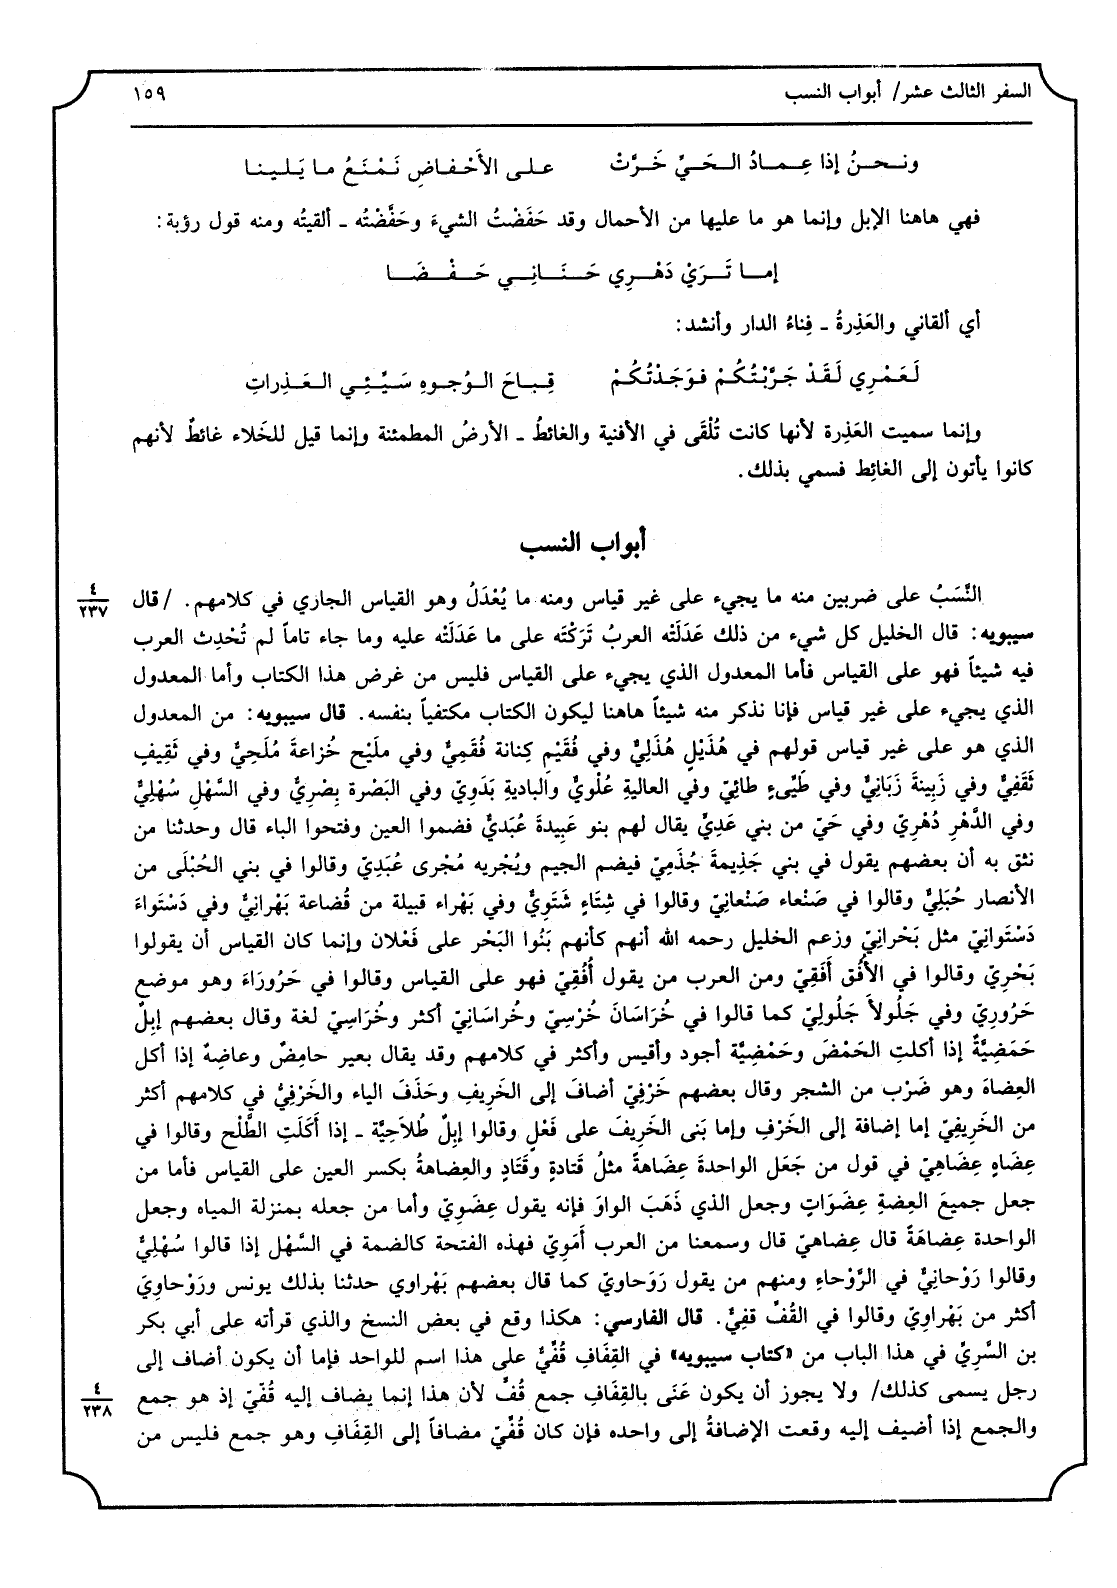 السفر الثالث عشر/ أبواب النسب
١٥٩
ونـحـنُ إذا عِـمـادُ الـحَـيِّ خَـرَّتْ على الأَحْفاضِ نَمْنَعُ ما يَلينا
فهي هاهنا الإبل وإنما هو ما عليها من الأحمال وقد حَفَضْتُ الشيءَ وحَفَّضْتُه ـ ألقيتُه ومنه قول رؤبة:
إمـا تَـرَيْ دَهْـرِي حَـنَـانِـي حَـفْـضَـا
أي ألقاني والعَذِرةُ ـ فِناءُ الدار وأنشد:
لَعَمْرِي لَقَدْ جَرَّبْتُكُمْ فوَجَدْتُكُمْ قِـبـاحَ الـوُجـوهِ سَـيِّـئِـي الـعَـذِراتِ
وإنما سميت العَذِرة لأنها كانت تُلْقَى في الأفنية والغائطُ ـ الأرضُ المطمئنة وإنما قيل للخَلاء غائطٌ لأنهم
كانوا يأتون إلى الغائِط فسمي بذلك.
أبواب النسب
النَّسَبُ على ضربين منه ما يجيء على غير قياس ومنه ما يُعْدَلُ وهو القياس الجاري في كلامهم. /قال
٤
٢٣٧
سيبويه: قال الخليل كل شيء من ذلك عَدَلَتْه العربُ تَرَكْتَه على ما عَدَلَتْه عليه وما جاء تاماً لم تُحْدِث العرب
فيه شيئاً فهو على القياس فأما المعدول الذي يجيء على القياس فليس من غرض هذا الكتاب وأما المعدول
الذي يجيء على غير قياس فإنا نذكر منه شيئاً هاهنا ليكون الكتاب مكتفياً بنفسه. قال سيبويه: من المعدول
الذي هو على غير قياس قولهم في هُذَيْلٍ هُذَلِيٌّ وفي فُقَيْمِ كِنانة فُقَمِيٌّ وفي مليْح خُزاعةَ مُلَحِيٌّ وفي ثَقِيفٍ
ثَقَفِيٌّ وفي زَبِينةَ زَبَانِيٌّ وفي طَيِّىءٍ طائِيّ وفي العاليةِ عُلْويٌّ والباديةِ بَدَوِيّ وفي البَصْرة بِصْرِيٌّ وفي السَّهْلِ سُهْلِيٌّ
وفي الدَّهْرِ دُهْرِيّ وفي حَيّ من بني عَدِيٍّ يقال لهم بنو عَبِيدةَ عُبَديٌّ فضموا العين وفتحوا الباء قال وحدثنا من
نثق به أن بعضهم يقول في بني جَذِيمةَ جُذَمِيّ فيضم الجيم ويُجْريه مُجْرى عُبَدِيّ وقالوا في بني الحُبْلَى من
الأنصار حُبَلِيٌّ وقالوا في صَنْعاء صَنْعانِيّ وقالوا في شِتَاءٍ شَتَوِيٌّ وفي بَهْراء قبيلة من قُضاعة بَهْرانِيٌّ وفي دَسْتَواءَ
دَسْتَوانِيّ مثل بَحْرانِيّ وزعم الخليل رحمه الله أنهم كأنهم بَنُوا البَحْر على فَعْلان وإنما كان القياس أن يقولوا
بَحْرِيّ وقالوا في الأُفُق أَفَقِيّ ومن العرب من يقول أُفُقِيّ فهو على القياس وقالوا في حَرُورَاءَ وهو موضع
حَرُورِيّ وفي جَلُولاَ جَلُولِيّ كما قالوا في خُرَاسَانَ خُرْسِيّ وخُراسَانِيّ أكثر وخُرَاسِيّ لغة وقال بعضهم إبِلٌ
حَمَضِيَّةٌ إذا أكلتِ الحَمْضَ وحَمْضِيَّة أجود وأقيس وأكثر في كلامهم وقد يقال بعير حامِضٌ وعاضِهٌ إذا أكل
العِضاة وهو ضَرْب من الشجر وقال بعضهم خَرْفِيّ أضافَ إلى الخَرِيفِ وحَذَفَ الياء والخَرْفِيُّ في كلامهم أكثر
من الخَرِيفِيّ إما إضافة إلى الخَرْفِ وإما بَنى الخَرِيفَ على فَعْلٍ وقالوا إبِلٌ طُلاَحِيَّة ـ إذا أَكَلَتِ الطَّلْح وقالوا في
عِضَاهٍ عِضَاهِيّ في قول من جَعَل الواحدةَ عِضَاهةً مثلُ قَتادةٍ وقَتَادٍ والعِضاهةُ بكسر العين على القياس فأما من
جعل جميعَ العِضةِ عِضَوَاتٍ وجعل الذي ذَهَبَ الواوَ فإنه يقول عِضَوِيّ وأما من جعله بمنزلة المياه وجعل
الواحدة عِضاهَةً قال عِضاهيّ قال وسمعنا من العرب أَمَوِيّ فهذه الفتحة كالضمة في السَّهْل إذا قالوا سُهْلِيٌّ
وقالوا رَوْحانِيٌّ في الرَّوْحاءِ ومنهم من يقول رَوْحاويّ كما قال بعضهم بَهْراوي حدثنا بذلك يونس ورَوْحاوِيّ
أكثر من بَهْراوِيّ وقالوا في القُفِّ قِفِيٌّ. قال الفارسي: هكذا وقع في بعض النسخ والذي قرأته على أبي بكر
بن السَّرِيِّ في هذا الباب من «كتاب سيبويه» في القِفَافِ قُفِّيٌّ على هذا اسم للواحد فإما أن يكون أضاف إلى
رجل يسمى كذلك/ ولا يجوز أن يكون عَنَى بالقِفَافِ جمع قُفٍّ لأن هذا إنما يضاف إليه قُفِّيّ إذ هو جمع
٤
٢٣٨
والجمع إذا أضيف إليه وقعت الإضافةُ إلى واحده فإن كان قُفِّيّ مضافاً إلى القِفَافِ وهو جمع فليس من